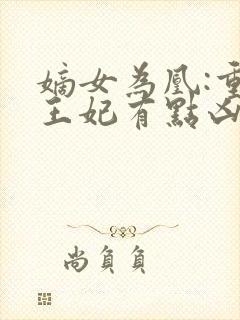 嫡女為凰:重
王妃有點凶
尚負負